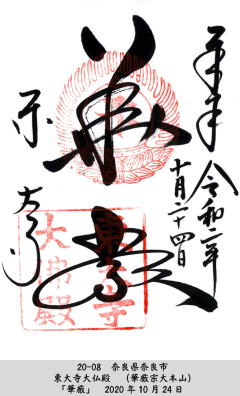 奉拝
令和二年
十月二十四日
華厳
東大寺
東大寺
大佛殿
20-08 奈良県奈良市
東大寺大仏殿 (華厳宗大本山)
「華厳」 2020年10月24日